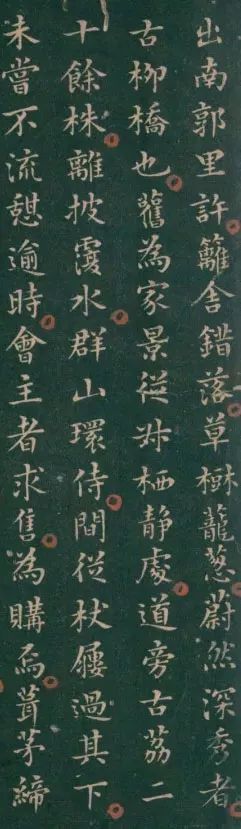 出南郭里許籬舍錯落草樹蘢蔥蔚然深秀者
古柳橋也舊為家景從叔栖靜處道旁古荔二
十餘株離披覆水群山環侍間從杖屨過其下
未嘗不流憩逾時會主者求售為購焉葺茅締